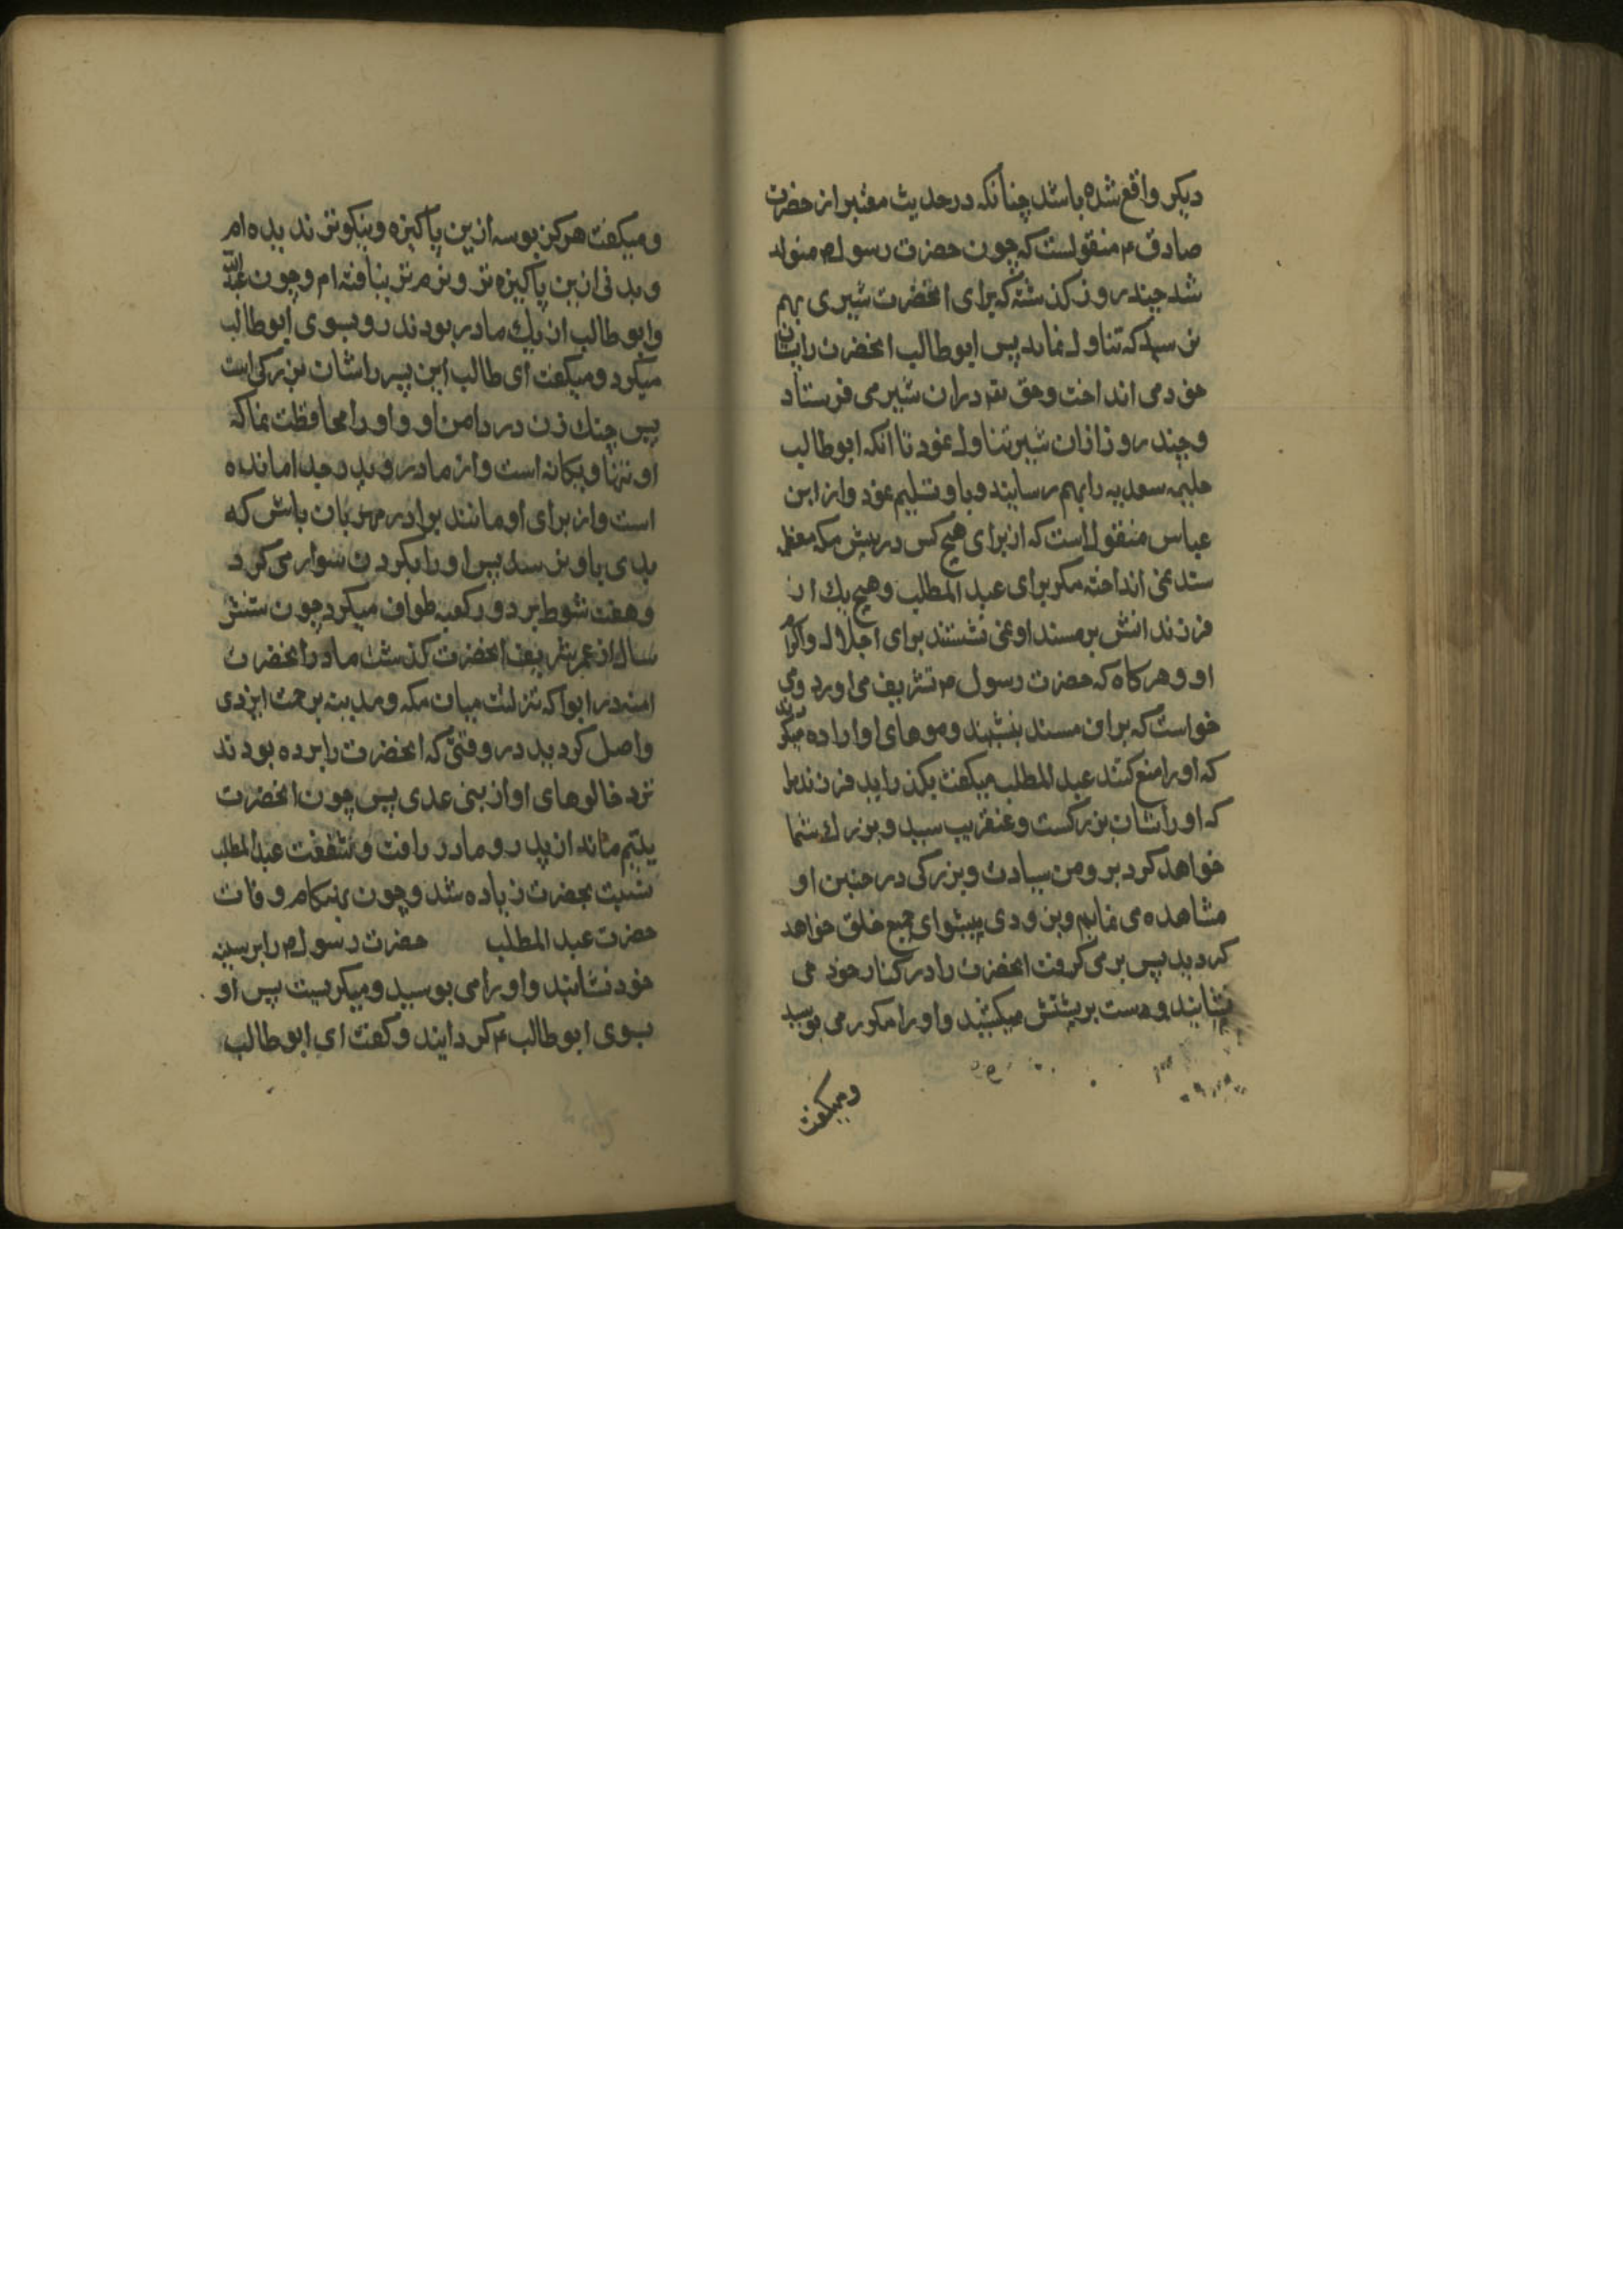 دیکر واقع شده باشد چنانکه در حدیث معتبر از حضرت
صادق ع منقولست که چون حضرت رسول ص متولد
شد چند روز کذشته که برای انحضرت شیری بهم
نرسید که تناول نماید پس ابوطالب انحضرت را بپستان
خود می انداخت و حق تع در ان شیر می فرستاد
و چند روز ازان شیر تناول نمود تا انکه ابوطالب
حلیمه سعدیه را بهم رسانید و باو تسلیم نمود و از ابن
عباس منقول است که از برای هیچ کس در پیش مکه معظمه
مسند نمی انداختند مکر برای عبد المطلب و هیچ یک از
فرزندانش بر مسند او نمی نشستند برای اجلال و اکرام
او و هرکاه که حضرت رسول ص تشریف می اورد و می
خواست که بران مسند بنشیند و عموهای او اراده میکردند
که او را منع کنند عبد المطلب میکفت بکذارید فرزند مرا
که او را شان بزرکست و عنقریب سید و بزرک شما
خواهد کردید و من سیادت و بزرکی در جبین او
مشاهده می نمایم و بزودی پیشوای جمیع خلق خواهد
کردید پس بر می کرفت انحضرت را در کنار خود می
نشانید و دست بر پشتش میکشید و او را مکرر می بوسید
ومیکفت
ومیکفت هرکز بوسه ازین پاکیزه و نیکوتر ندیده ام
و بدنی ازین پاکیزه تر و نرم تر نیافته ام و چون عبد الله
و ابوطالب از یک مادر بودند رو بسوی ابوطالب
میکرد و میکفت ای طالب این پسر را شان بزرکی است
پس چنک زن در دامن او و او را محافظت نما که
او تنها و یکانه است و از مادر و پدر جدا مانده
است و از برای او مانند برادر مهربان باش که
بدی باو نرسد پس او را بکردن سوار می کرد
و هفت شوط بر دور کعبه طواف میکرد چون شش
سال از عمر شریف انحضرت کذشت مادر انحضرت
امنه در ابوا که منزلیست میان مکه و مدینه برحمت ایزدی
واصل کردید در وقتی که انحضرت را برده بودند
نزد خالوهای او از بنی عدی پس چون انحضرت
یتیم ماند از پدر و مادر رافت و شفقت عبد المطلب
نسبت بحضرت زیاده شد و چون هنکام وفات
حضرت عبد المطلب حضرت رسول ص را بر سینه
خود نشانید و او را می بوسید و میکریست پس او
بسوی ابوطالب ع کردانید و کفت ای ابوطالب